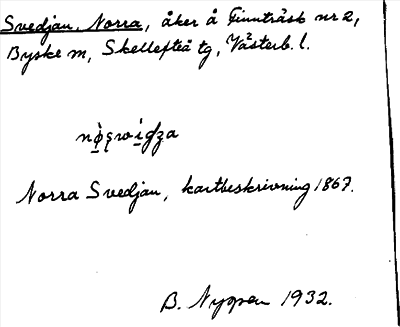 Svedjan, Norra, åker å Finnträsk nr 2,
Byske m, Skellefteå tg, Västerb. l.
Norra Svedjan, kartbeskrivning 1867.
B. Nygren 1932.